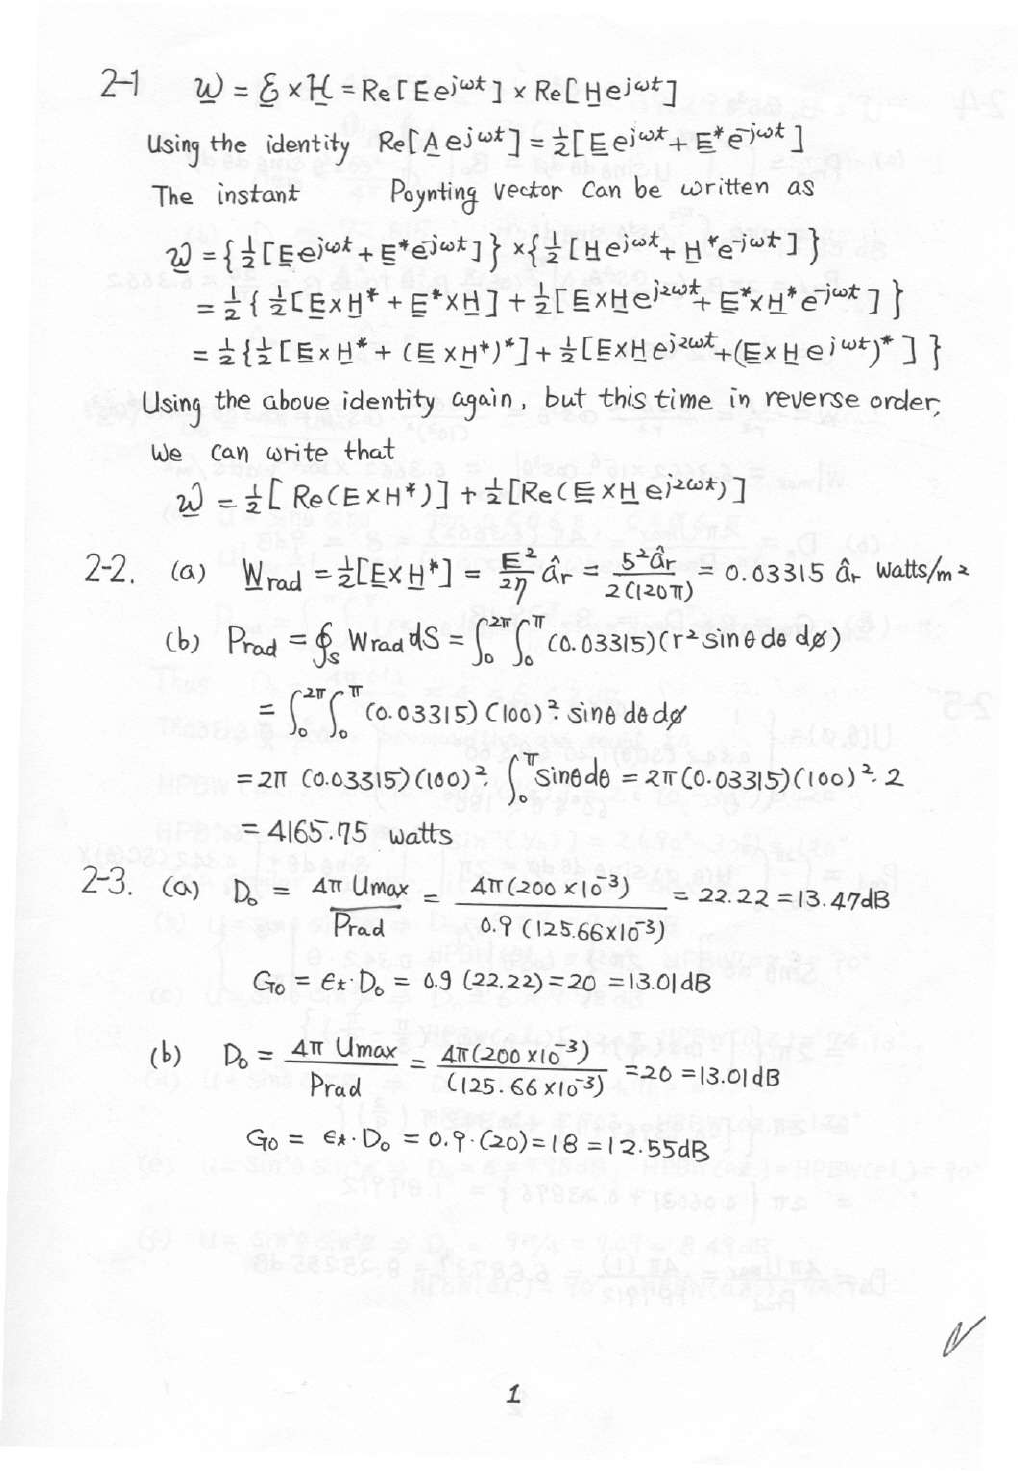 2-1 W = E × H = Re[Ee^{jωt}] × Re[He^{jωt}]
Using the identity Re[Ae^{jωt}] = ½[Ee^{jωt} + E*e^{-jωt}]
The instant Poynting vector can be written as
W = {½[Ee^{jωt} + E*e^{-jωt}]} × {½[He^{jωt} + H*e^{-jωt}]}
= ½{½[E×H* + E*×H] + ½[E×He^{j2ωt} + E*×H*e^{-jωt}]}
= ½{½[E×H* + (E×H*)*] + ½[E×He^{j2ωt} + (E×He^{jωt})*]}
Using the above identity again, but this time in reverse order,
We can write that
W = ½[Re(E×H*)] + ½[Re(E×He^{j2ωt})]
2-2. (a) Wrad = ½[E×H*] = E²/2η âr = 5²âr/2(120π) = 0.03315 âr Watts/m²
(b) Prad = ∮s Wrad dS = ∫₀^{2π} ∫₀^{π} (0.03315)(r² sinθ dθ dø)
= ∫₀^{2π} ∫₀^{π} (0.03315)(100)²· sinθ dθ dø
= 2π (0.03315)(100)²· ∫₀^{π} sinθdθ = 2π(0.03315)(100)²·2
= 4165.75 watts
2-3. (a) D₀ = 4π Umax/Prad = 4π(200×10⁻³)/0.9(125.66×10⁻³) = 22.22 = 13.47dB
G₀ = et·D₀ = 0.9 (22.22) = 20 = 13.01dB
(b) D₀ = 4π Umax/Prad = 4π(200×10⁻³)/(125.66×10⁻³) = 20 = 13.01dB
G₀ = et·D₀ = 0.9·(20) = 18 = 12.55dB
1